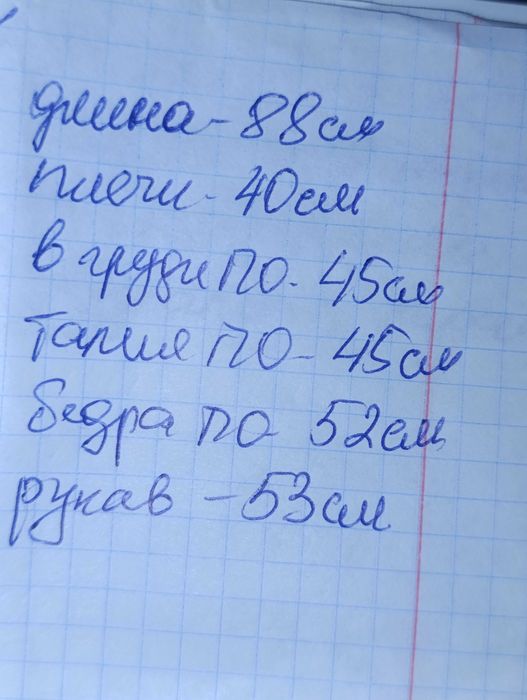 длина - 88см
плечи - 40см
в груди ПО - 45см
талия ПО - 45см
бедра ПО 52см
рукав - 53см